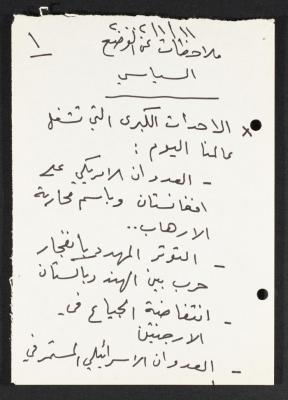 ١
ملاحظات عن الوضع
السياسي
× الاحداث الكبرى التي تشغل
عالمنا اليوم :
- العدوان الامريكي على
افغانستان وباسم محاربة
الارهاب..
- التوتر المهدد بانفجار
حرب بين الهند وباكستان
- انتفاضة الجياع في
الارجنتين
- العدوان الاسرائيلي المستمر في